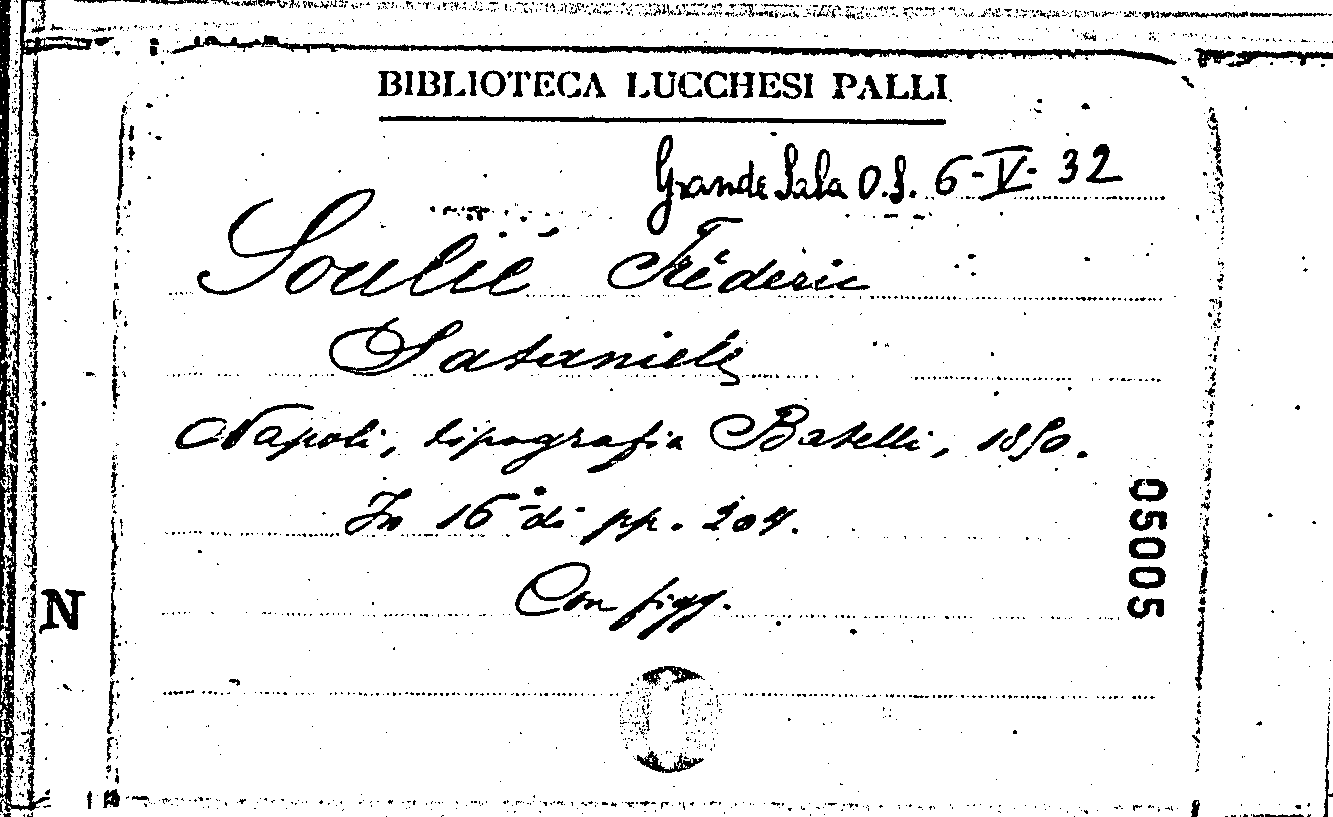 BIBLIOTECA LUCCHESI PALLI
Grande Sala O.S. 6-V-32
Soulié Fréderic
Sataniele
Napoli, tipografia Batelli, 1850.
In 16° di pp. 204.
Con figg.
05005
N